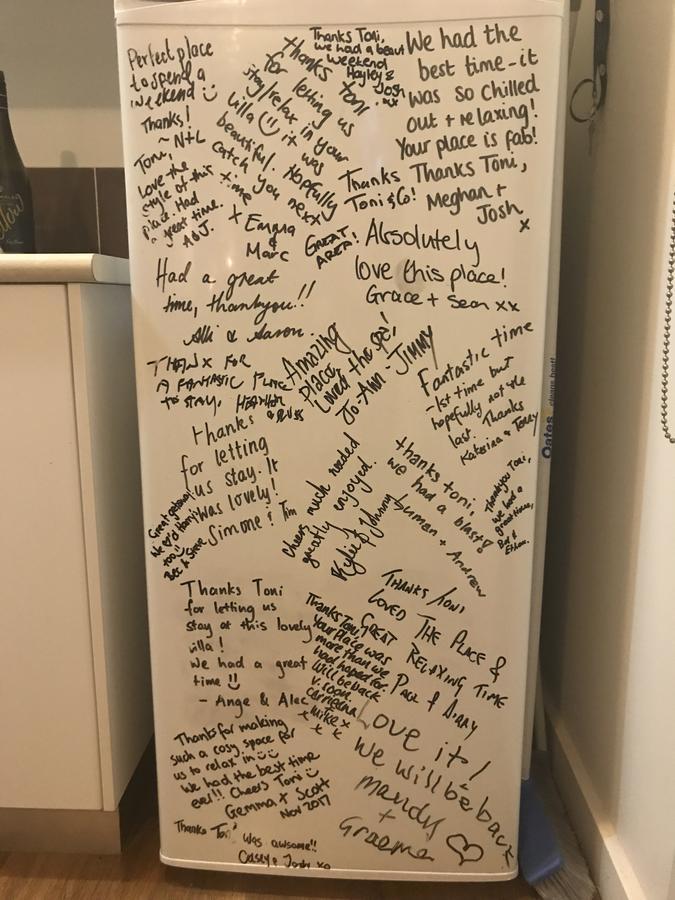 Perfect place
to spend a
weekend
Thanks!
~ N+L
Thanks Toni,
we had a beaut
weekend
Hayley &
Josh
xx
We had the
best time - it
was so chilled
out + relaxing!
Your place is fab!
Thanks Toni,
Meghan +
Josh
x
thanks toni
for letting us
stay/relax in your
villa it was
beautiful. Hopefully
catch you next
time xx
x Emma
&
Marc
Toni,
Love the
style of this
place. Had
a great time.
A&J.
Thanks
Toni & Co!
GREAT
AREA!
Absolutely
love this place!
Grace + Sean xx
Had a great
time, thankyou!!
Alli & Aaron.
THANX FOR
A FANTASTIC PLACE
TO STAY. HEATHER
& RUSS
Amazing
Place
Loved the spa!
Jo-Ann - JIMMY
Fantastic time
- 1st time but
hopefully not the
last. Thanks
Katerina & Terry
Oates
cleans best!
thanks
for letting
us stay. It
was lovely!
Simone & Tim
Great getaway!
We ♡'d Harry
too!!
Bec & Steve
Cheers much needed
greatly enjoyed.
Kylie & Johnny
thanks toni,
we had a blast
+ Andrew
Thankyou Toni,
we had a
great time,
&
Ethan.
Thanks Toni
for letting us
stay at this lovely
villa!
We had a great
time
- Ange & Alec
THANKS TONI
LOVED THE PLACE &
GREAT RELAXING TIME
PAUL & DIANY
Thanks Toni,
Your Place was
more than we
had hoped for.
Will be back
v. soon.
Carrieann
Mike x
x x
Thanks for making
such a cosy space for
us to relax in
We had the best time
ever!! Cheers Toni
Gemma + Scott
Nov 2017
Love it!
We will be back
mandy
+
Graeme
Thanks Toni
Was awsome!!
Casey & Josh xo